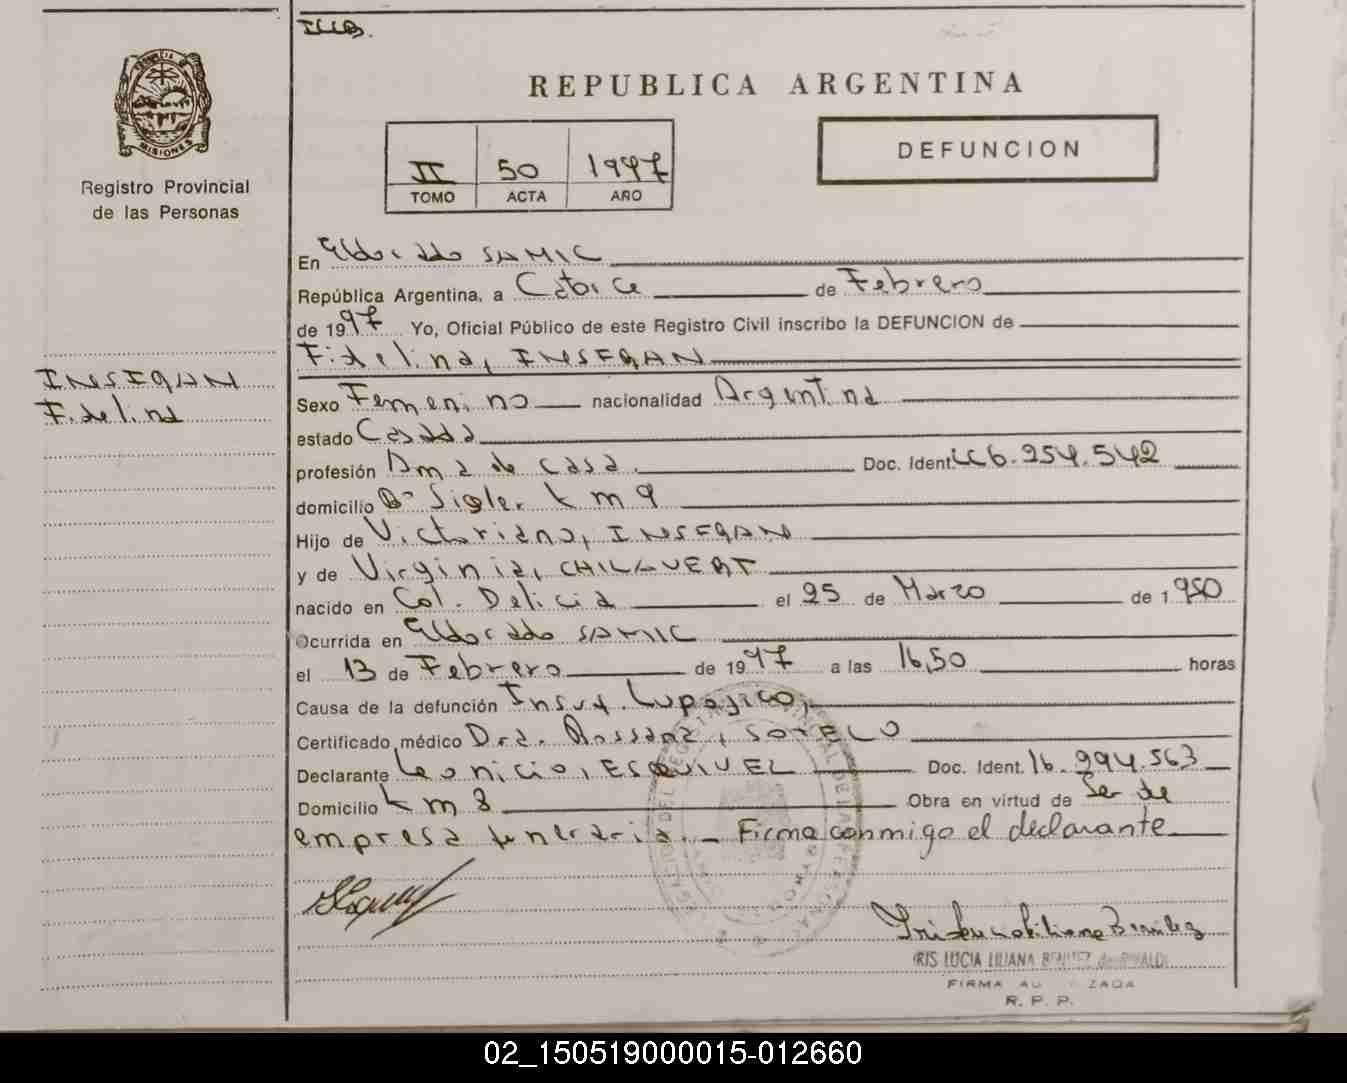 ILLB.
REPUBLICA ARGENTINA
DEFUNCION
II 50 1997
TOMO ACTA AÑO
MISIONES
Registro Provincial
de las Personas
En Eldorado SAMIC
República Argentina, a Catorce de Febrero
de 1997 Yo, Oficial Público de este Registro Civil inscribo la DEFUNCION de
Fidelina, INSFRAN
INSFRAN
Fidelina
Sexo Femenino nacionalidad Argentina
estado Casada
profesión Ama de casa Doc. Ident. LC 6.254.542
domicilio Bº Km 9
Hijo de Victoriano, INSFRAN
y de Virginia, CHILAVERT
nacido en Col. Delicia el 25 de Marzo de 1950
Ocurrida en Eldorado SAMIC
el 13 de Febrero de 1997 a las 16,50 horas
Causa de la defunción Insuf.
Certificado médico Dra. Rossana, SOTELO
Declarante Leonicio, ESQUIVEL Doc. Ident. 16.994.563
Domicilio Km 8 Obra en virtud de Ser de
empresa funeraria.- Firma conmigo el declarante
IRIS LUCIA LILIANA BENITEZ de RIVALDI
FIRMA AUTORIZADA
R. P. P.
02_150519000015-012660